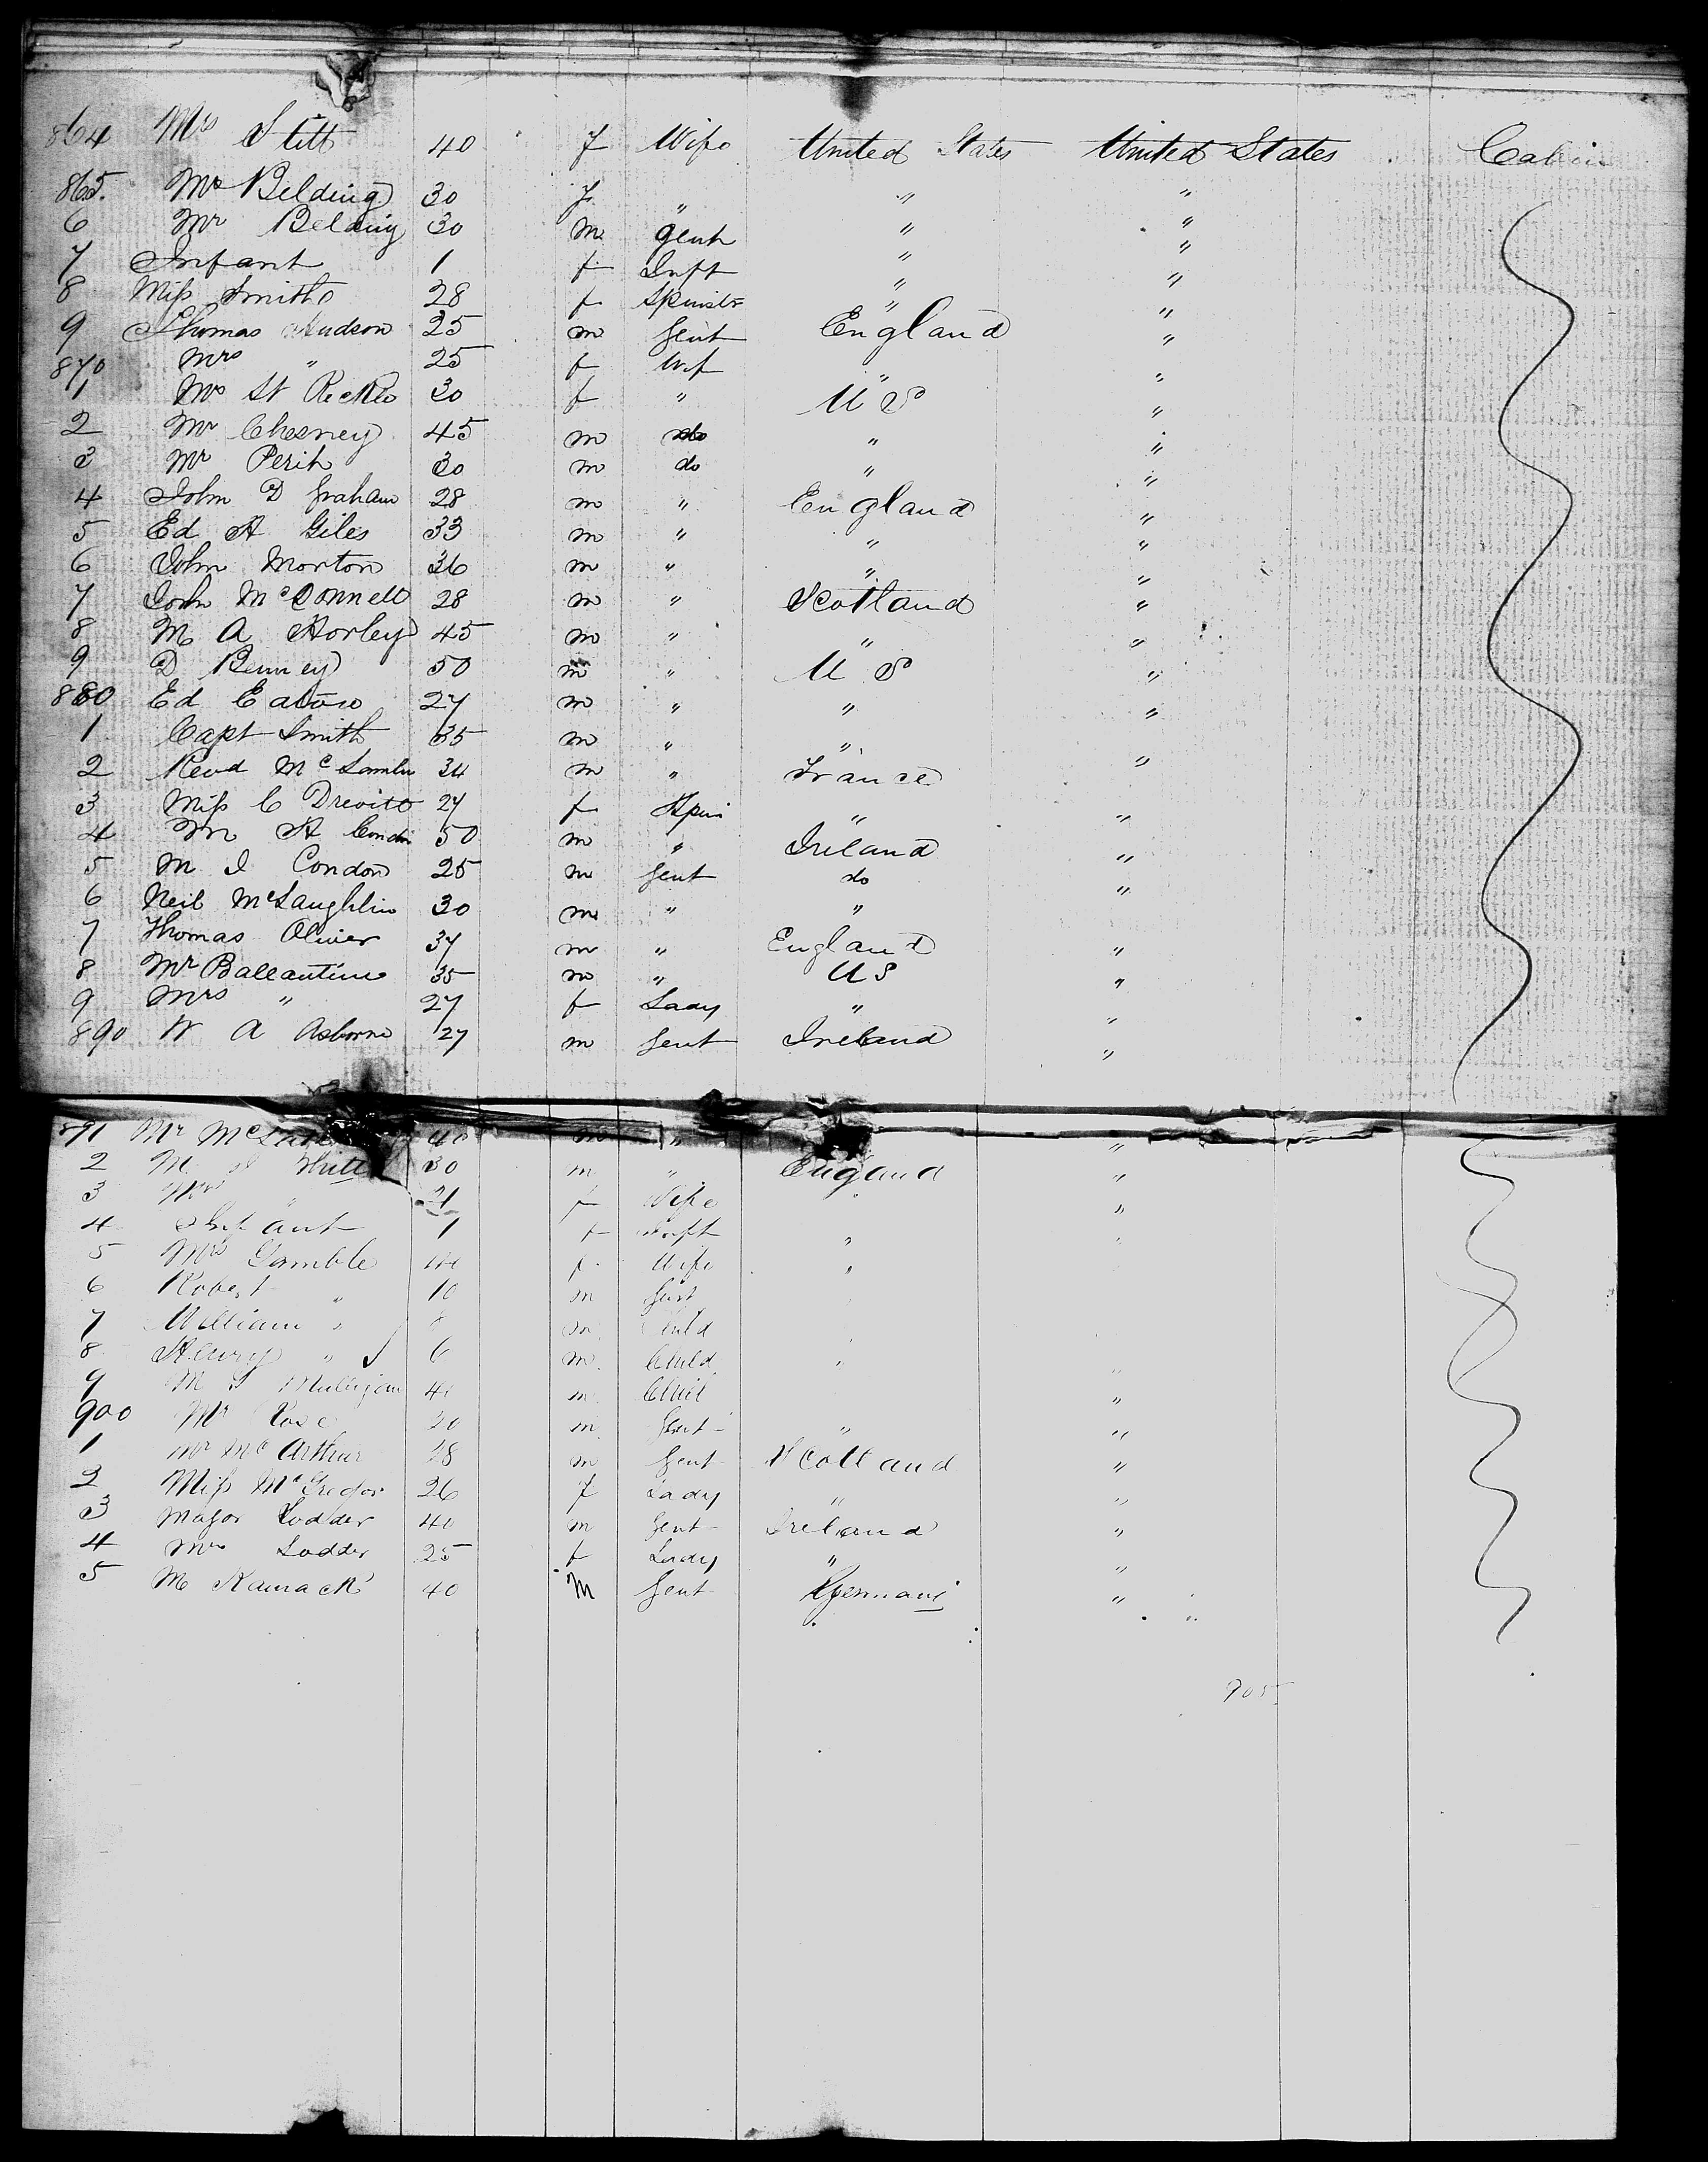 864 Mrs Stitt 40 f Wife United States United States Cabin
865. Mrs Belding 30 f " " "
6 Mr Belding 30 m Gent " "
7 Infant 1 f Inft " "
8 Miss Smith 28 f Spinstr " "
9 Thomas Hudson 25 m Gent England "
870 Mrs " 25 f Wif " "
1 Mrs St 30 f " U S "
2 Mr Chesney 45 m do " "
3 Mr 30 m do " "
4 John D Graham 28 m " England "
5 Ed A Giles 33 m " " "
6 John Morton 36 m " " "
7 John McConnell 28 m " Scotland "
8 M A Horley 45 m " " "
9 D 50 m " U S "
880 Ed Eaton 27 m " " "
1 Capt Smith 35 m " " "
2 Revd Mc 34 m " France "
3 Miss C 27 f Spin " "
4 Mr A Condon 50 m " Ireland "
5 M J Condon 25 m Gent do "
6 Neil McLaughlin 30 m " "
7 Thomas Oliver 37 m " England "
8 Mr Ballantine 35 m " U S "
9 Mrs " 27 f Lady " "
890 W A Osborne 27 m Gent Ireland "
891 Mr 40 m " "
2 M White 30 m " Engand "
3 Mrs " 21 f Wife "
4 Infant 1 f Inft "
5 Mrs Gamble 40 f Wife "
6 Robert " 10 m
7 William " 8 m Child
8 Henry " 6 m. Child "
9 M Mulligan 40 m Chil "
900 Mr Rose 30 m Gent " "
1 Mr McArthur 28 m Gent Scotland "
2 Miss McGregor 26 f Lady " "
3 Major Lodder 40 m Gent Ireland "
4 Mrs Lodder 25 f Lady " "
5 M 40 M Gent Germany "
905